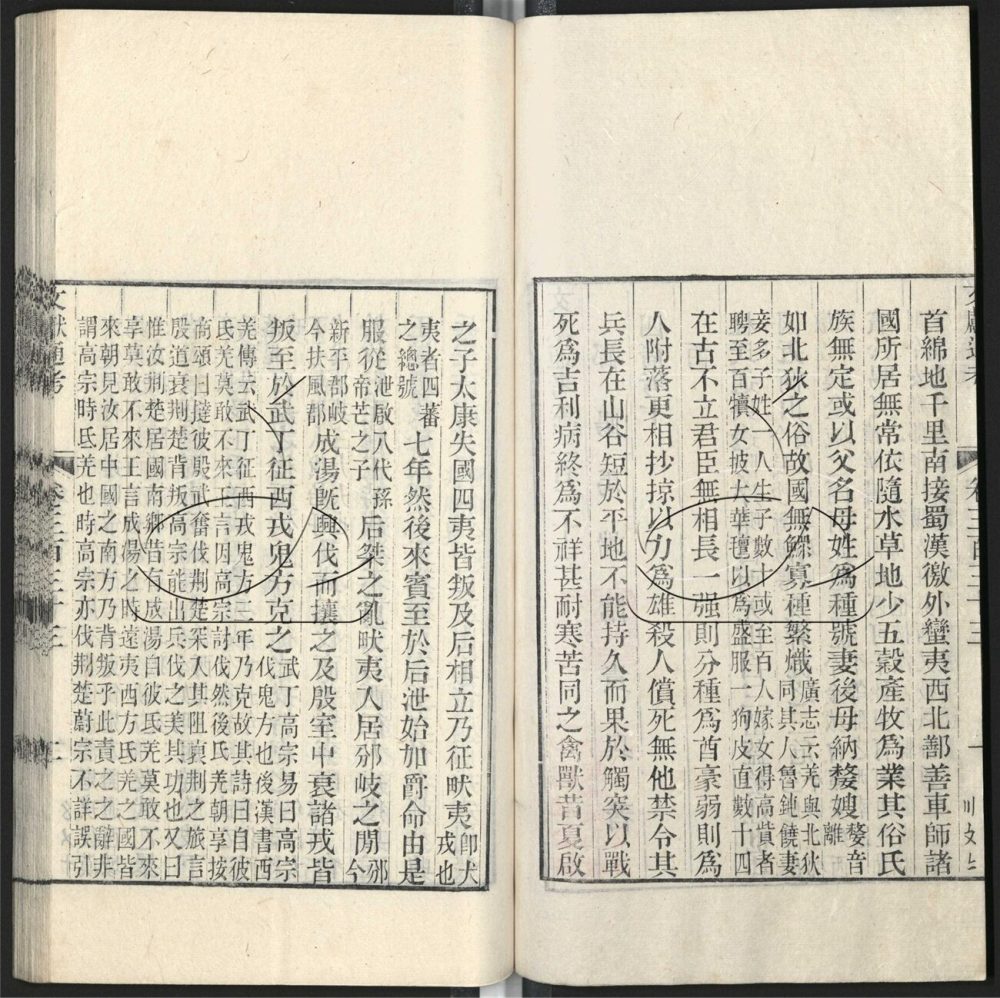 首綿地千里南接蜀漢徼外蠻夷西北鄯善車師諸
國所居無常依隨水草地少五穀產牧爲業其俗氏
族無定或以父名母姓爲種號妻後母納嫠嫂嫠音離
如北狄之俗故國無鰥寡種繁熾廣志云羌與北狄同其人魯鈍饒妻
妾多子姓一人生子數十或至百人嫁女得高貲者聘至百犢女披大華氊以爲盛服一狗皮直數十四
在古不立君臣無相長一强則分種爲酋豪弱則爲
人附落更相抄掠以力爲雄殺人償死無他禁令其
兵長在山谷短於平地不能持久而果於觸突以戰
死爲吉利病終爲不祥甚耐寒苦同之禽獸昔夏啟
之子太康失國四夷皆叛及后相立乃征畎夷卽犬戎也
夷者四蕃之總號七年然後來賓至於后泄始加爵命由是
服從泄啟八代孫帝芒之子后桀之亂畎夷入居邠岐之閒邠今
新平郡岐今扶風郡成湯旣興伐而攘之及殷室中衰諸戎皆
叛至於武丁征西戎鬼方克之武丁高宗易曰高宗伐鬼方也後漢書西
羌傳云武丁征西戎鬼方三年乃克故其詩曰自彼氐羌莫敢不來王言因高宗討伐然後氐羌朝享按
商頌曰撻彼殷武奮伐荆楚罙入其阻裒荆之旅言殷道衰荆楚背叛高宗能出兵伐之美其功也又曰
惟汝荆楚居國南鄉昔有成湯自彼氐羌莫敢不來享莫敢不來王言成湯之時遠夷西方氐羌之國皆
來朝見汝居中國之南方乃背叛乎此責之之辭非謂高宗時氐羌也時高宗亦伐荆楚蔚宗不詳誤引
文獻通考
卷三百三十三
二